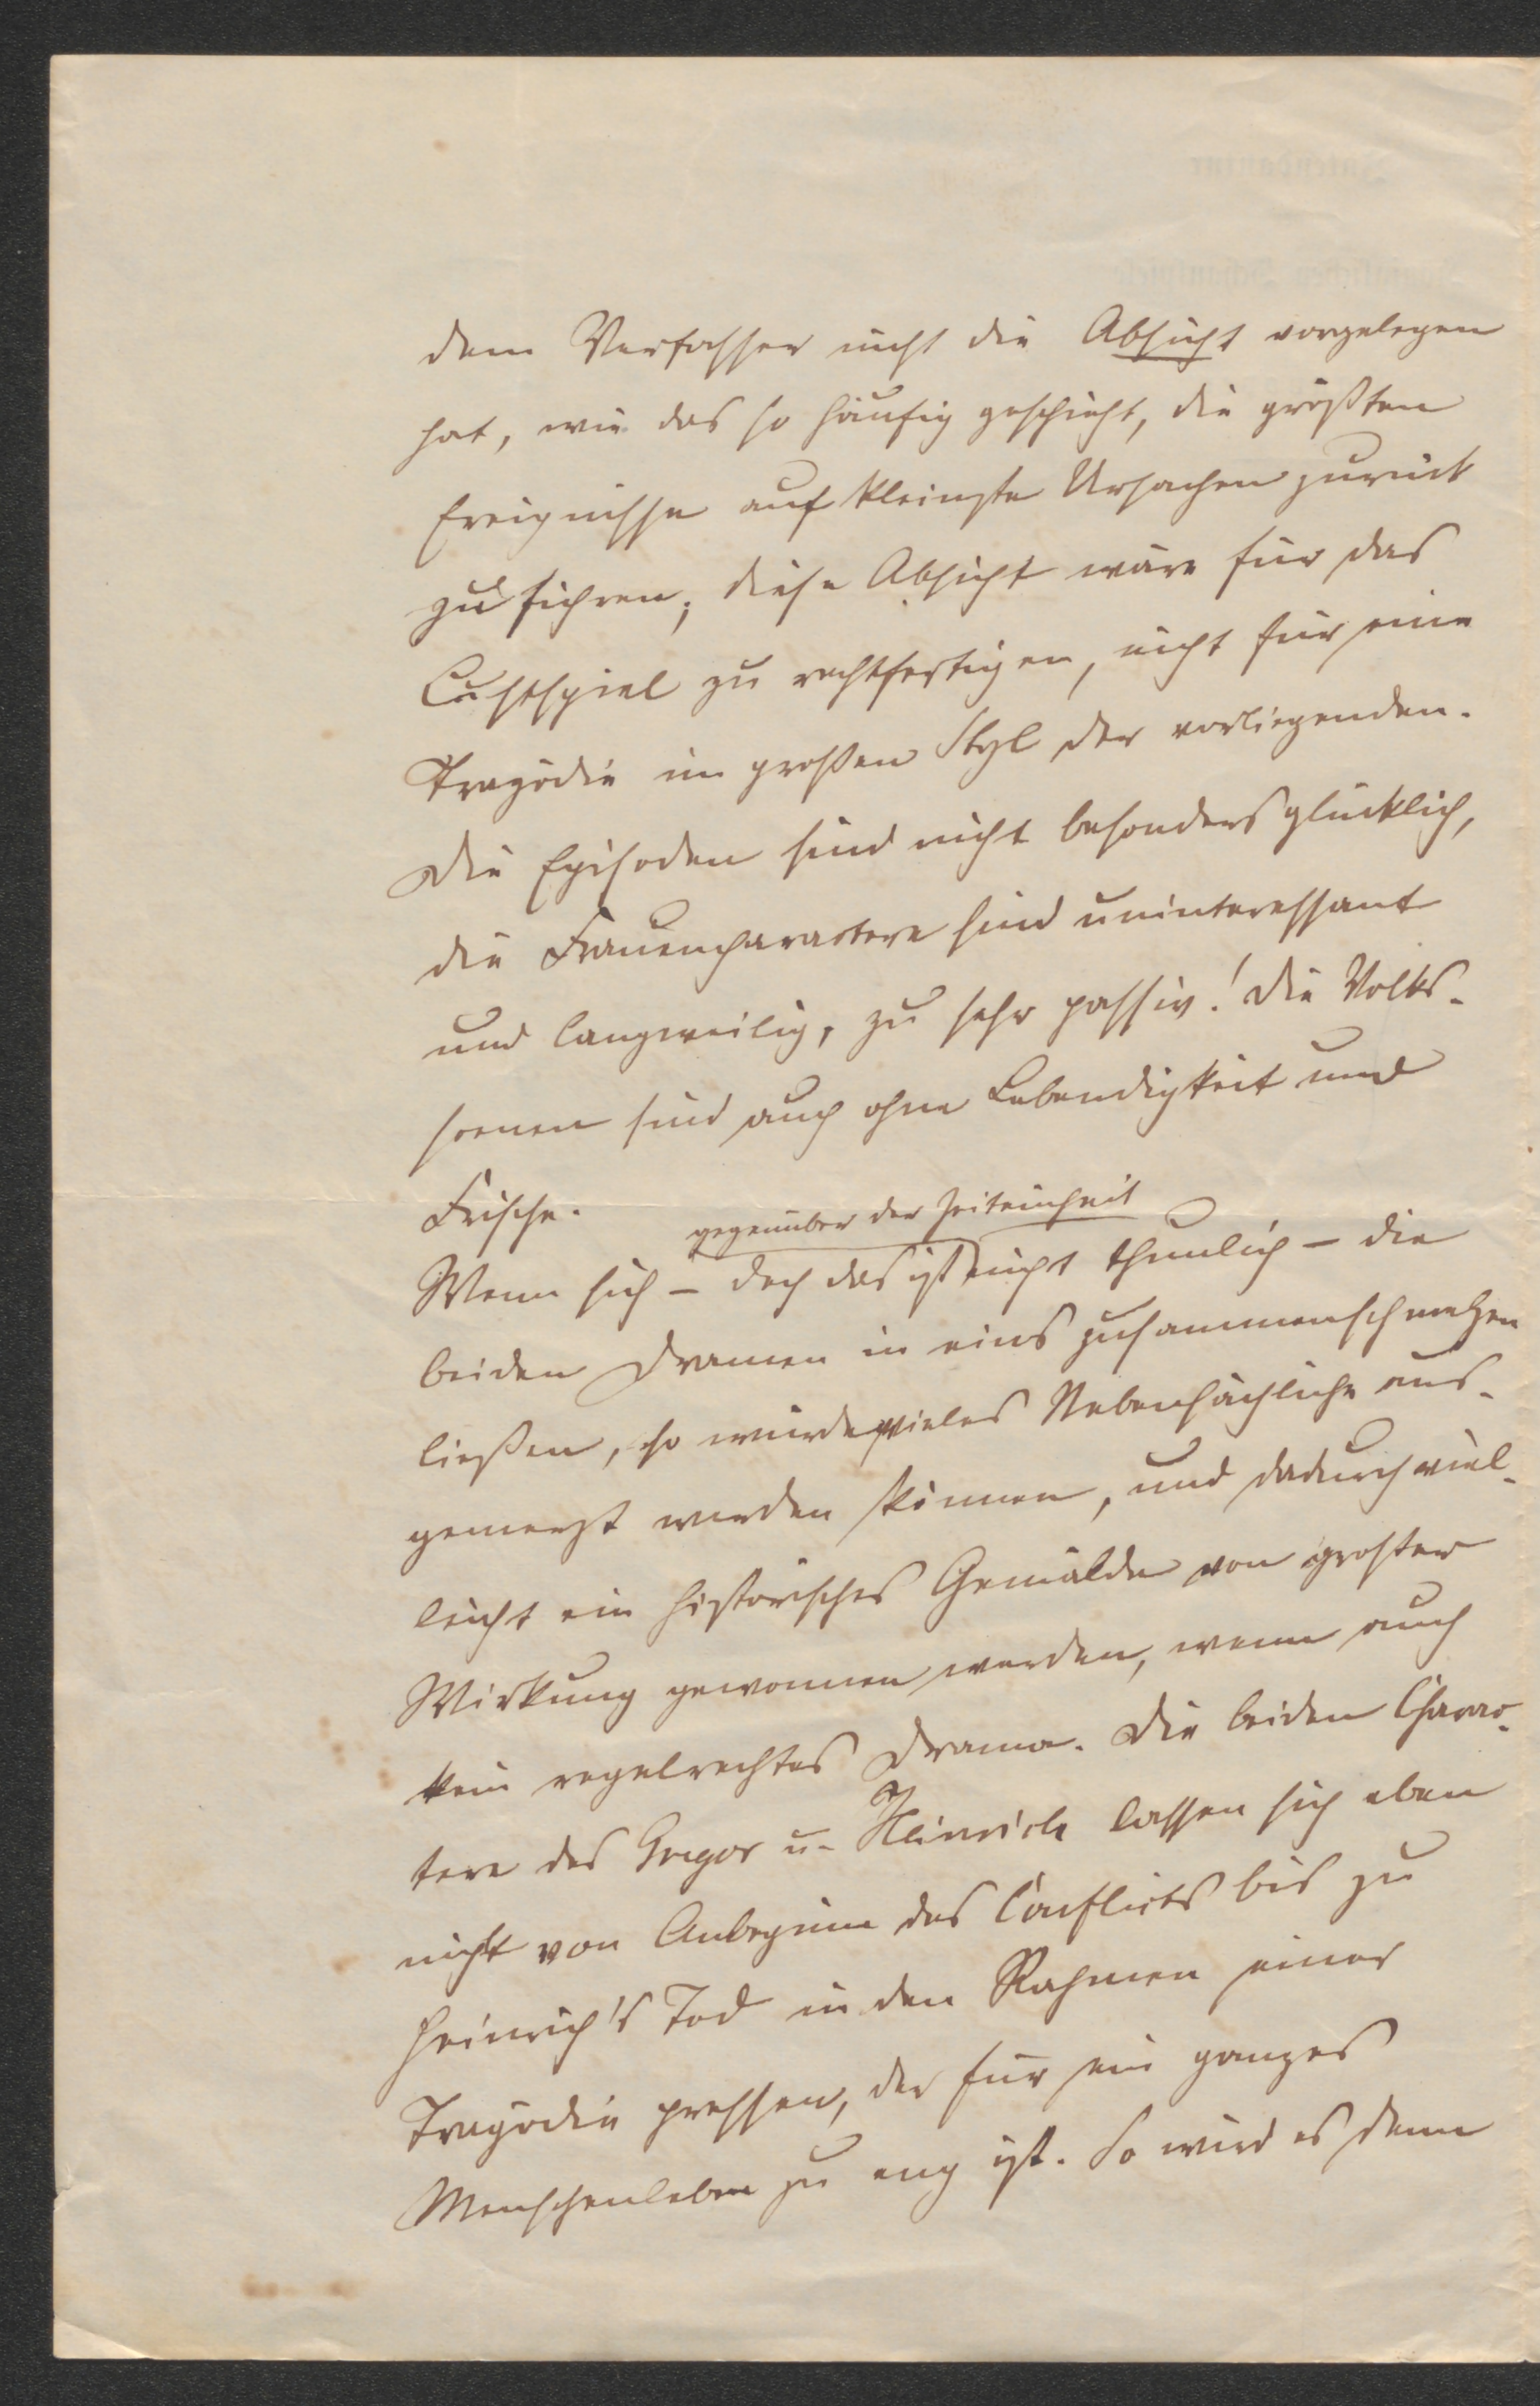 dem Verfasser nicht die Absicht vorgelegen
hat, wie das so häufig geschieht, die größten
Ereignisse auf kleinste Ursachen zurück
zu führen; diese Absicht wäre für das
Lustspiel zu rechtfertigen, nicht für eine
Tragödie im großen Styl der vorliegenden.
Die Episoden sind nicht besonders glücklich,
die Frauencharactere sind uninteressant
und langweilig, zu sehr passiv! Die Volks-
scenen sind auch ohne Lebendigkeit und
Frische.
gegenüber der Zeiteinheit
Wenn sich – doch das ist nicht thunlich – die
beiden Dramen in eins zusammenschmelzen
ließen, so würde vieles Nebensächliche aus-
gemerzt werden können, und dadurch viel-
leicht ein historisches Gemälde von großer
Wirkung gewonnen werden, wenn auch
kein regelrechtes Drama. Die beiden Charac-
tere des Gregor u. Heinrich lassen sich eben
nicht von Anbeginn des Conflicts bis zu
Heinrich's Tod in den Rahmen einer
Tragödie pressen, der für ein ganzes
Menschenleben zu eng ist. So wird es denn